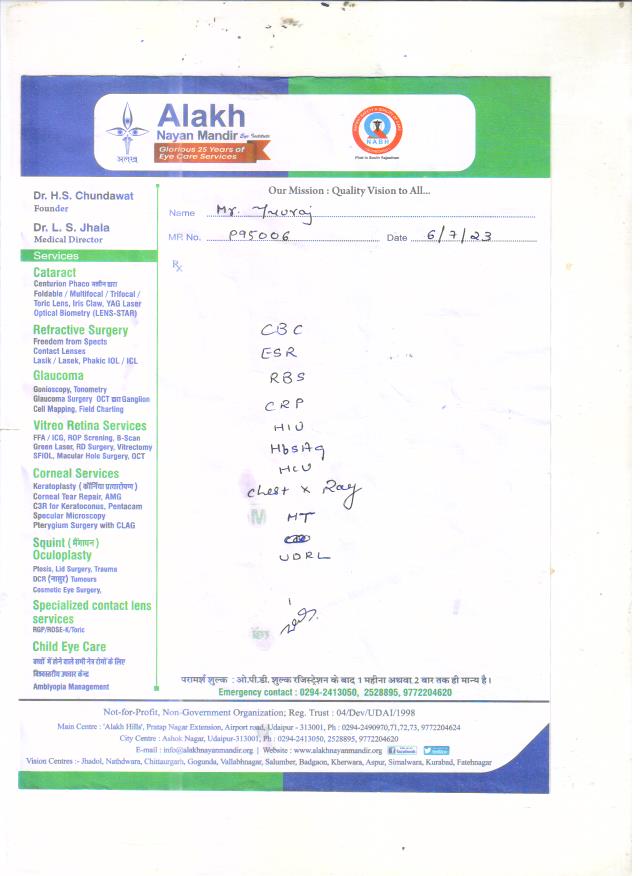 Alakh
Nayan Mandir Eye Institute
Glorious 25 Years of
Eye Care Services
अलख
NABH
First in South Rajasthan
Our Mission : Quality Vision to All...
Name Mr. Yuvraj
MR No. P95006 Date 6/7/23
Rx
Dr. H.S. Chundawat
Founder
Dr. L. S. Jhala
Medical Director
Services
Cataract
Centurion Phaco नवीन द्वारा
Foldable / Multifocal / Trifocal /
Toric Lens, Iris Claw, YAG Laser
Optical Biometry (LENS-STAR)
Refractive Surgery
Freedom from Spects
Contact Lenses
Lasik / Lasek, Phakic IOL / ICL
Glaucoma
Gonioscopy, Tonometry
Glaucoma Surgery OCT द्वारा Ganglion
Cell Mapping, Field Charting
Vitreo Retina Services
FFA / ICG, ROP Screning, B-Scan
Green Laser, RD Surgery, Vitrectomy
SFIOL, Macular Hole Surgery, OCT
Corneal Services
Keratoplasty (कॉर्निया प्रत्यारोपण)
Corneal Tear Repair, AMG
C3R for Keratoconus, Pentacam
Specular Microscopy
Pterygium Surgery with CLAG
Squint (भैंगापन)
Oculoplasty
Ptosis, Lid Surgery, Trauma
DCR (नासूर) Tumours
Cosmetic Eye Surgery,
Specialized contact lens
services
RGP/ROSE-K/Toric
Child Eye Care
बच्चों में होने वाले सभी नेत्र रोगों के लिए
विश्वस्तरीय उपचार केन्द्र
Amblyopia Management
CBC
ESR
RBS
CRP
HIV
HbsAg
HCV
Chest x Ray
MT
VDRL
परामर्श शुल्क : ओ.पी.डी. शुल्क रजिस्ट्रेशन के बाद 1 महीना अथवा 2 बार तक ही मान्य है।
Emergency contact : 0294-2413050, 2528895, 9772204620
Not-for-Profit, Non-Government Organization; Reg. Trust : 04/Dev/UDAI/1998
Main Centre : 'Alakh Hills', Pratap Nagar Extension, Airport road, Udaipur - 313001, Ph : 0294-2490970,71,72,73, 9772204624
City Centre : Ashok Nagar, Udaipur-313001, Ph : 0294-2413050, 2528895, 9772204620
E-mail : info@alakhnayanmandir.org | Website : www.alakhnayanmandir.org facebook twitter
Vision Centres :- Jhadol, Nathdwara, Chittaurgarh, Gogunda, Vallabhnagar, Salumber, Badgaon, Kherwara, Aspur, Simalwara, Kurabad, Fatehnagar